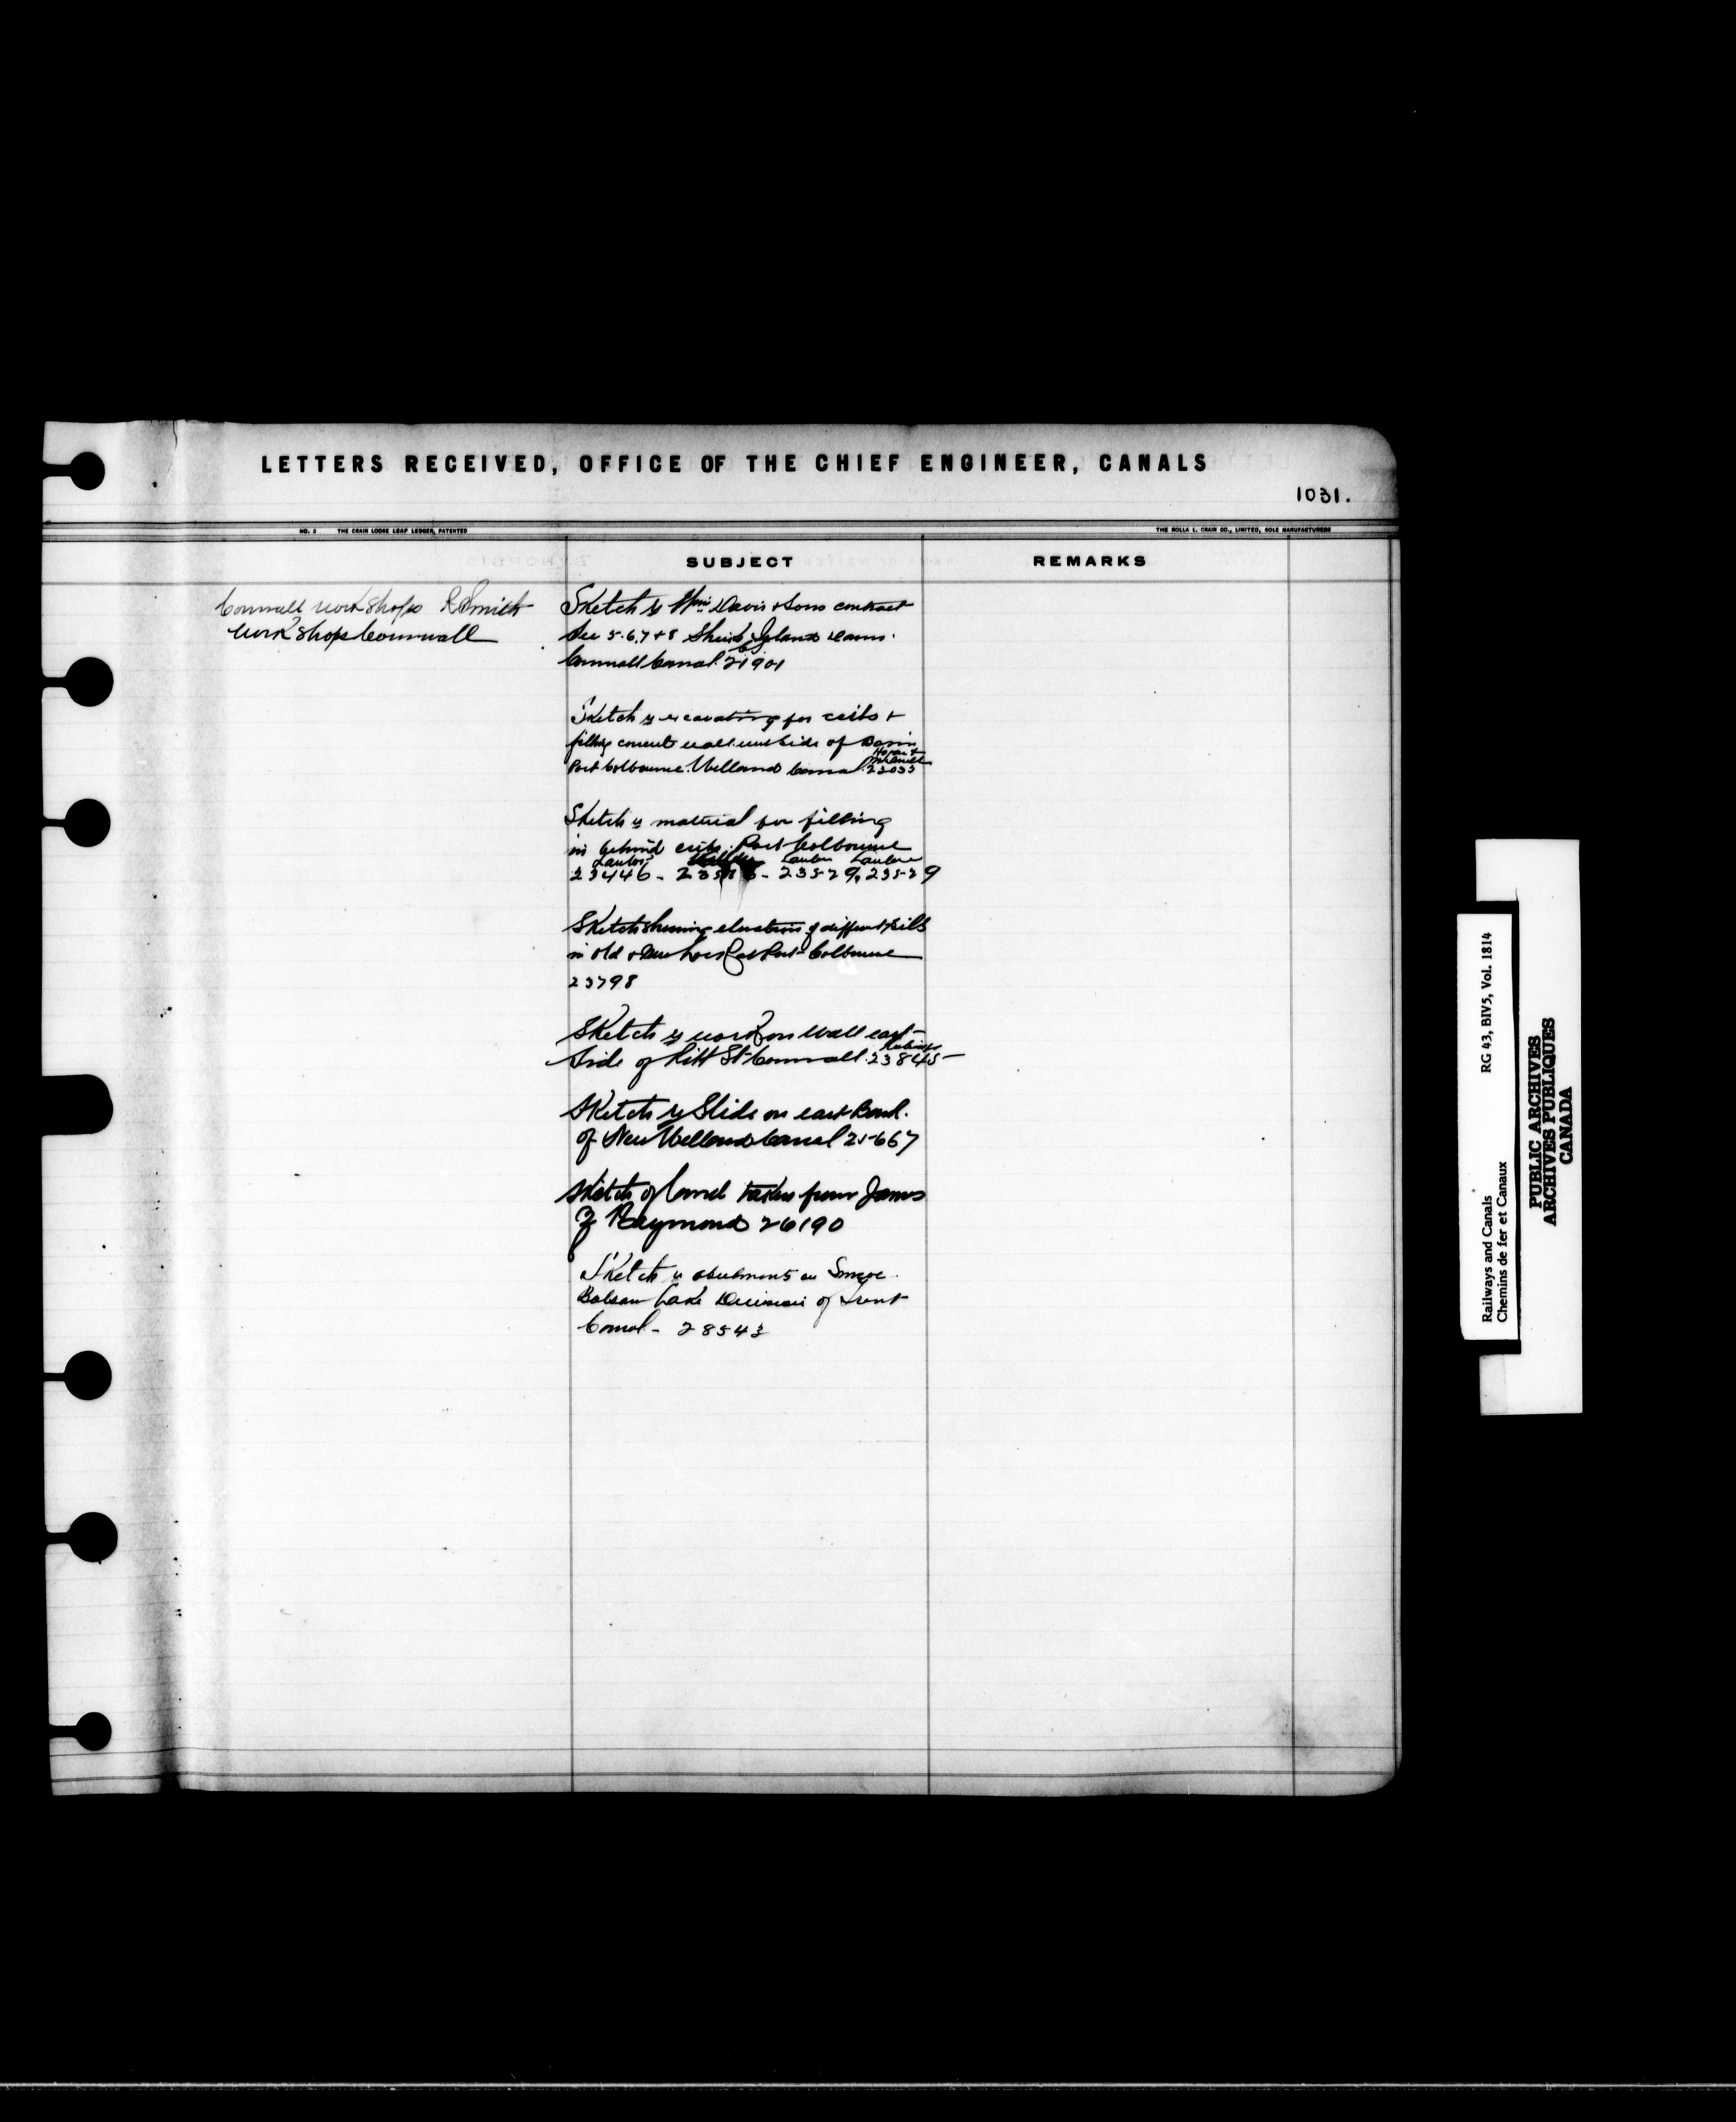 LETTERS RECEIVED, OFFICE OF THE CHIEF ENGINEER, CANALS
1031.
NO. 3 THE CRAIN LOOSE LEAF LEDGER, PATENTED
THE ROLLA L. CRAIN CO., LIMITED, SOLE MANUFACTURERS
SUBJECT
REMARKS
Cornwall workshops R Smith
Work shops Cornwall
Sketch re Wm Davis & Sons contract
Sec 5.6.7 & 8 Sheik Island Dam.
Cornwall Canal. 21901
Sketch re excavating for cribs &
filling concrete wall west side of Basin
Port Colbourne. Welland Canal. 23033
Sketch re material for filling
in behind cribs. Port Colbourne
23446 - 23529, 23529
Sketch showing elevation of different sills
in old & new Locks at Port Colbourne
23798
Sketch re work on wall east
side of Pitt St Cornwall. 23845
Sketch re Slide on east Bank.
of New Welland Canal 25667
Sketch of land taken from James
Raymond 26190
Sketch re abutments on Simcoe
Balsam Lake Division of Trent
Canal - 28543
RG 43, BIV5, Vol. 1814
Railways and Canals
Chemins de fer et Canaux
PUBLIC ARCHIVES
ARCHIVES PUBLIQUES
CANADA